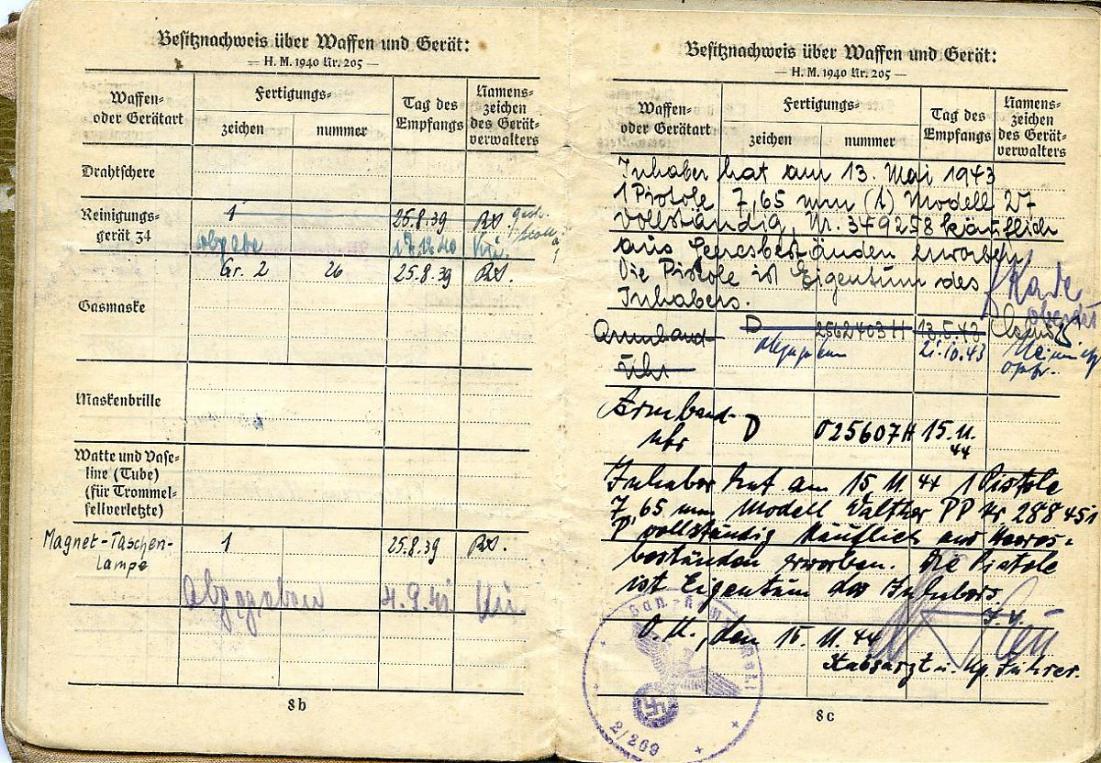 Besitznachweis über Waffen und Gerät:
— H. M. 1940 Nr. 205 —
Waffen- oder Gerätart
Fertigungs-
zeichen
nummer
Tag des Empfangs
Namens-zeichen des Gerät-verwalters
Drahtschere
Reinigungs-gerät 34
1
25.8.39
abgabe
17.12.40
Gasmaske
Gr. 2
26
25.8.39
Maskenbrille
Watte und Vase-
line (Tube)
(für Trommel-
fellverletzte)
Magnet-Taschen-
lampe
1
25.8.39
Abgegeben
4.9.41
8b
Besitznachweis über Waffen und Gerät:
— H. M. 1940 Nr. 205 —
Waffen- oder Gerätart
Fertigungs-
zeichen
nummer
Tag des Empfangs
Namens-zeichen des Gerät-verwalters
Inhaber hat am 13. Mai 1943
1 Pistole 7,65 mm (t) Modell 27
vollständig, Nr. 349258 käuflich
aus Heeresbeständen erworben
Die Pistole ist Eigentum des
Inhabers.
Armband-
Uhr
D
2562403 H
13.5.43
abgegeben
21.10.43
Armband-
uhr
D
025607 H
15.11.
44
Inhaber hat am 15 11. 44 1 Pistole
7,65 mm Modell Walther PP Nr 288451
P vollständig käuflich aus Heeres-
beständen erworben. Die Pistole
ist Eigentum des Inhabers
O.U., den 15. 11. 44
J.V.
Stabsarzt u. Kp. Führer.
2/269
8c